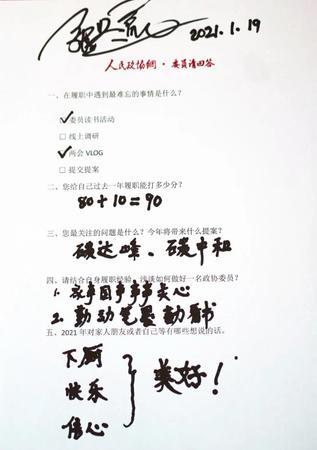 2021.1.19
人民政协网·委员请回答
一、在履职中遇到最难忘的事情是什么？
委员读书活动
线上调研
两会 VLOG
提交提案
二、您给自己过去一年履职能打多少分？
80+10=90
三、您最关注的问题是什么？今年将带来什么提案？
碳达峰、碳中和
四、请结合自身履职经验，谈谈如何做好一名政协委员？
1. 家事国事事事关心
2. 勤动笔墨勤看书
五、2021 年对家人朋友或者自己等有哪些想说的话。
下厨
快乐
信心
美好！